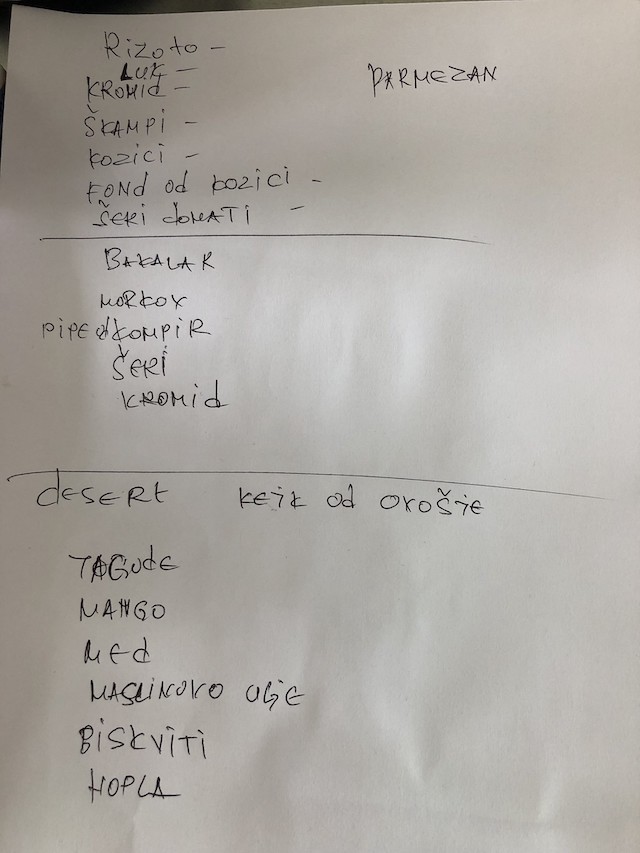 Rizoto –
LUK –
KROMID –
PARMEZAN
ŠKAMPI –
KOZICI –
FOND od KOZICI –
ŠERI DOMATI –
BAKALAR
MORKOV
PIPE od KOMPIR
ŠERI
KROMID
DESERT KEIK od OROŠJE
JAGODE
MANGO
MED
MASLINOVO ULJE
BISKVITI
HOPLA